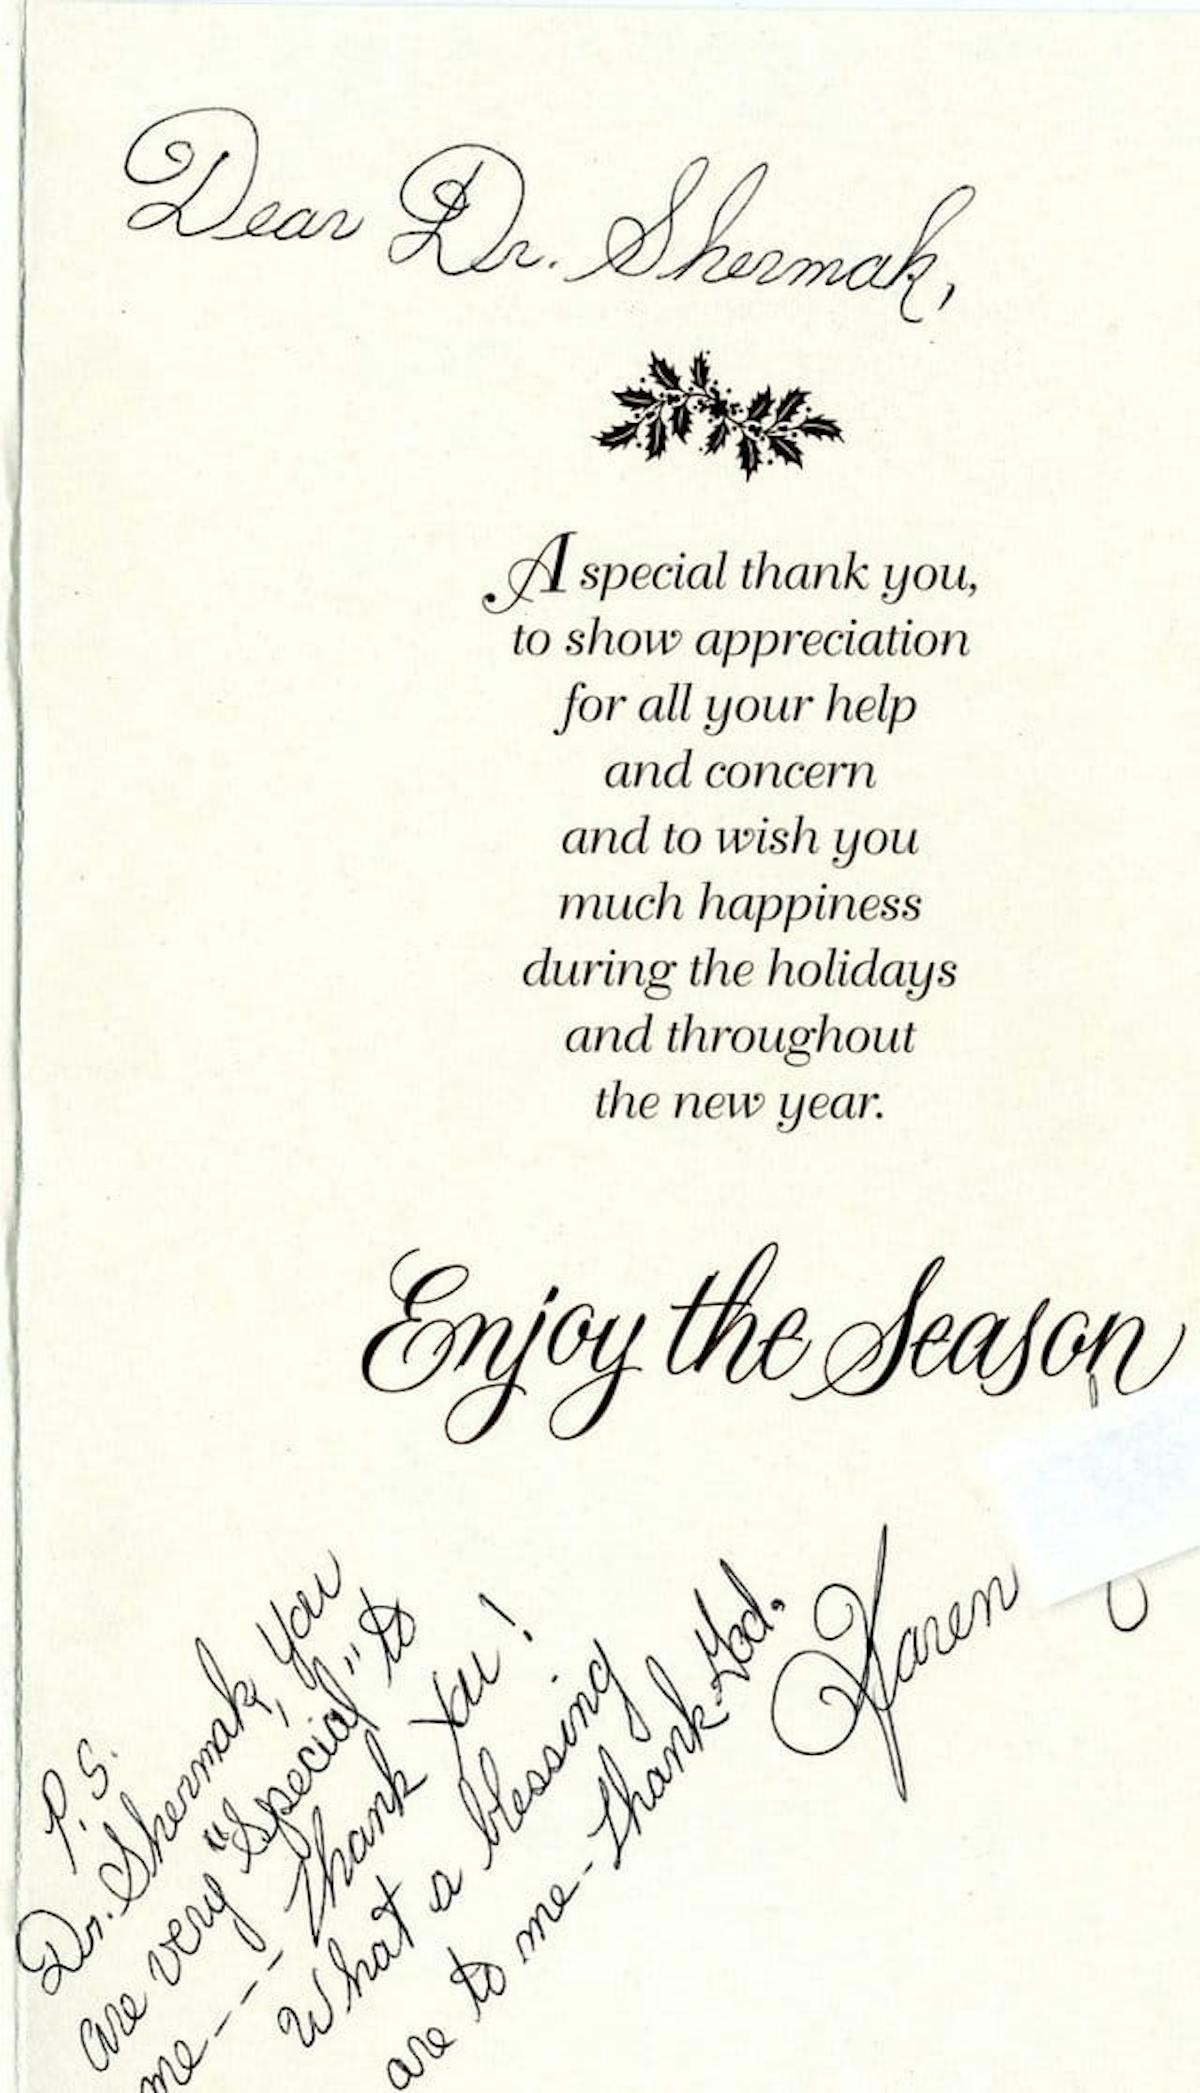 Dear Dr. Shermak,
A special thank you,
to show appreciation
for all your help
and concern
and to wish you
much happiness
during the holidays
and throughout
the new year.
Enjoy the Season
Karen
P.S.
Dr. Shermak, You
are very "Special" to
me --- Thank You!
What a blessing
are to me - Thank God.